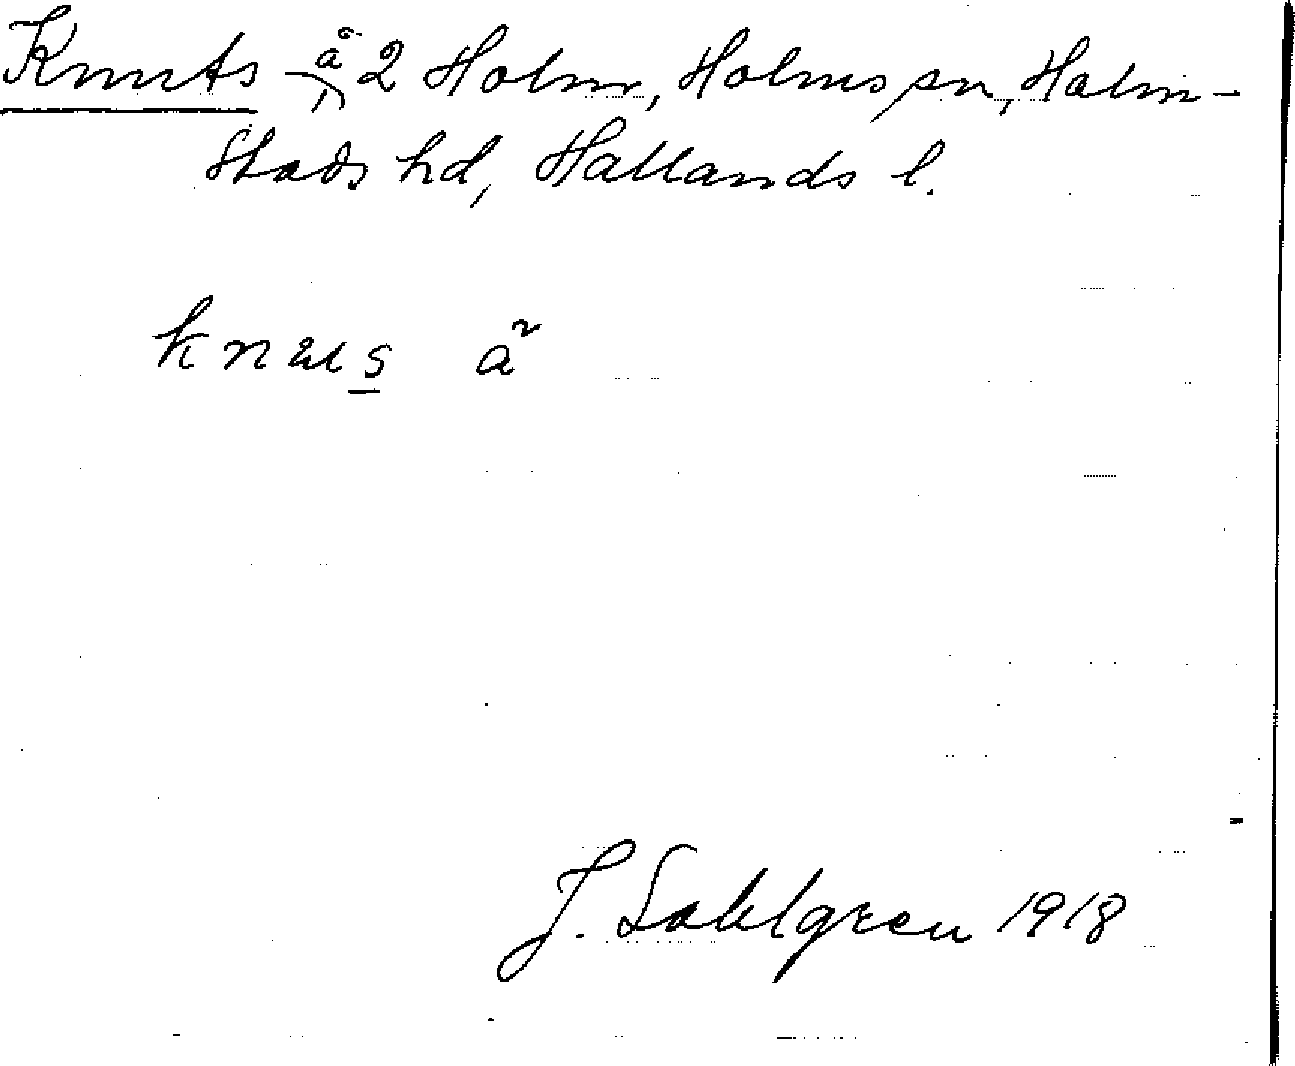 Knuts å 2 Holm, Holms sn, Halm-
stads hd, Hallands l.
J. Sahlgren 1918